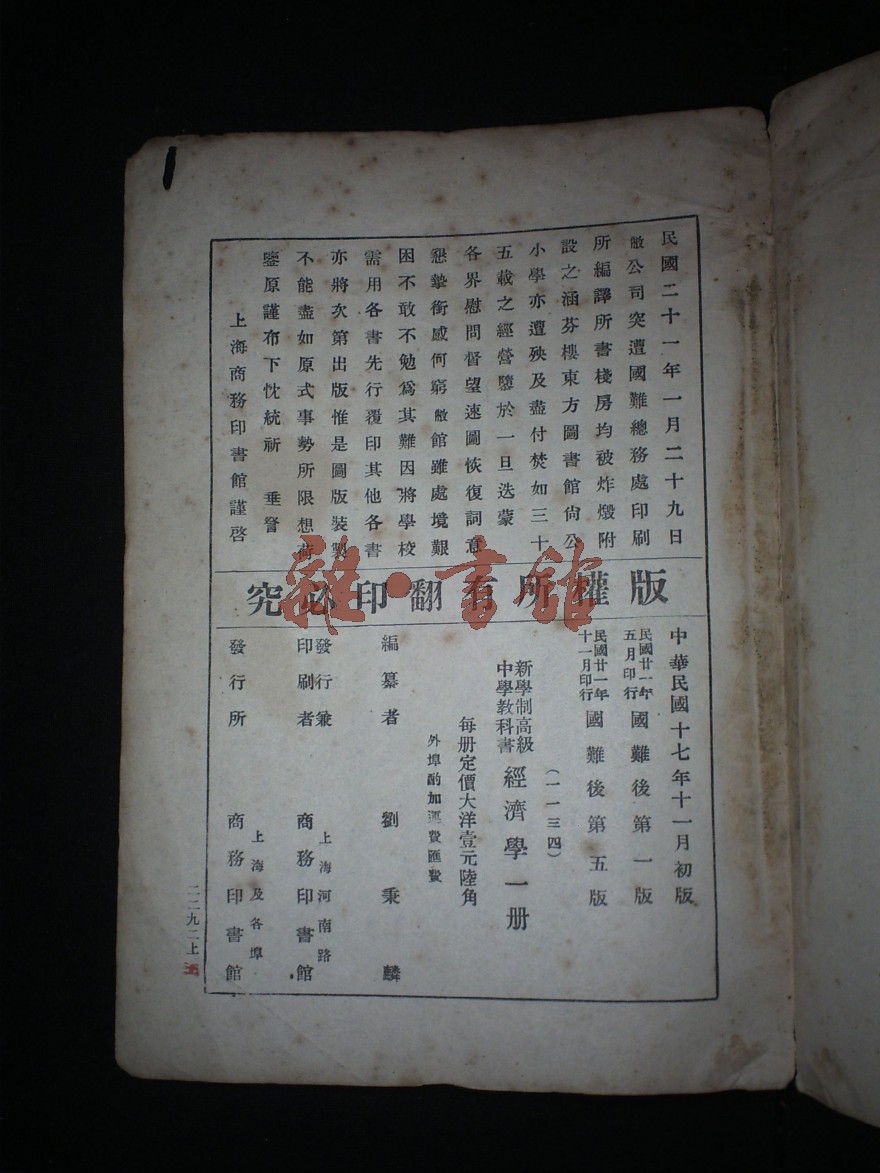 民國二十一年一月二十九日
敝公司突遭國難總務處印刷
所編譯所書棧房均被炸燬附
設之涵芬樓東方圖書館尙公
小學亦遭殃及盡付焚如三十
五載之經營隳於一旦迭蒙
各界慰問督望速圖恢復詞意
懇摯銜感何窮敝館雖處境艱
困不敢不勉爲其難因將學校
需用各書先行覆印其他各書
亦將次第出版惟是圖版裝製
不能盡如原式事勢所限想荷
鑒原謹布下忱統祈 垂詧
上海商務印書館謹啓
版權所有翻印必究
中華民國十七年十一月初版
民國廿一年五月印行 國難後第一版
民國廿一年十一月印行 國難後第五版
(一一三四)
新學制高級中學教科書 經濟學一册
每册定價大洋壹元陸角
外埠酌加運費匯費
編纂者 劉秉麟
發行兼印刷者 上海河南路 商務印書館
發行所 上海及各埠 商務印書館
二二九二上
雜·書館